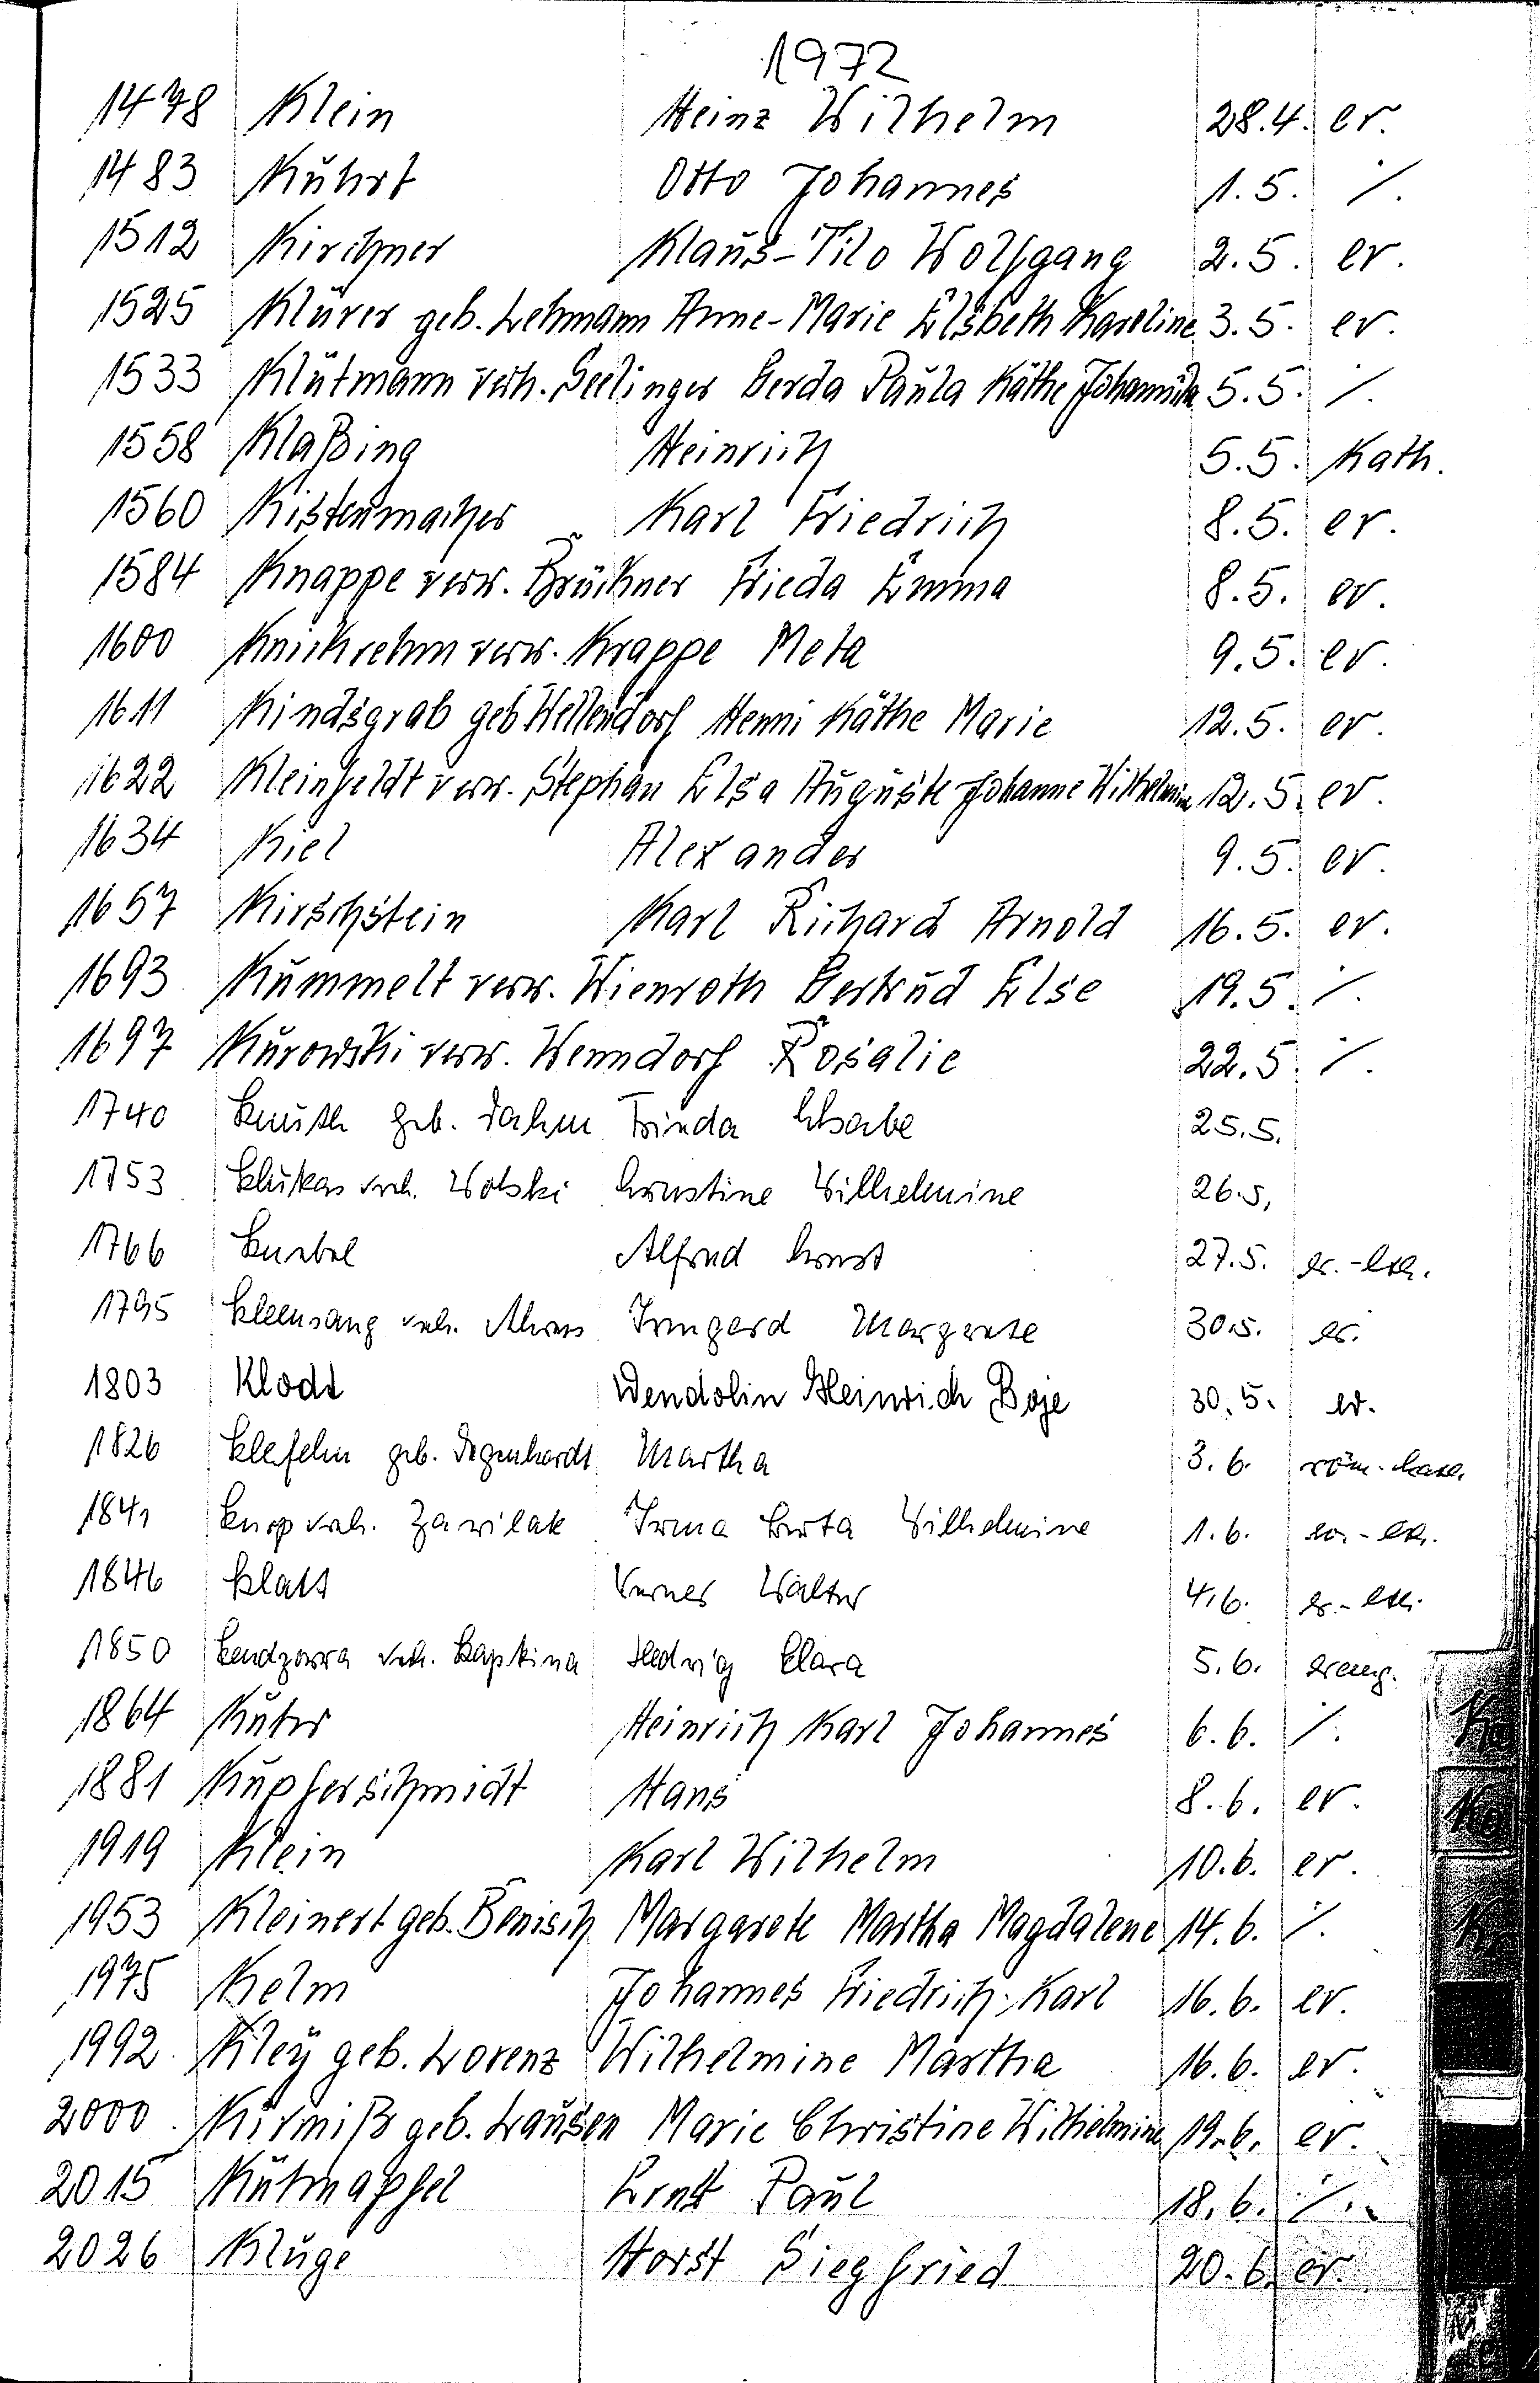 1972
1478 Klein Heinz Wilhelm 28.4. ev.
1483 Kuhrt Otto Johannes 1.5. ⁒
1512 Kirchner Klaus-Tilo Wolfgang 2.5. ev.
1525 Klürer geb. Lehmann Anne-Marie Elsbeth Karoline 3.5. ev.
1533 Klutmann verh. Seelinger Gerda Paula Käthe 5.5. ⁒
1558 Klaßing Heinrich 5.5. Kath.
1560 Kistenmacher Karl Friedrich 8.5. ev.
1584 Knappe verw. Brückner Frieda Emma 8.5. ev.
1600 Knickrehm verw. Krappe Meta 9.5. ev.
1611 Kindsgrab geb. Wellendorf Henni Käthe Marie 12.5. ev.
1622 Kleinfeldt verw. Stephan Elsa Auguste Johanne Wilhelmine 12.5. ev.
1634 Kiel Alexander 9.5. ev.
1657 Kirschstein Karl Richard Arnold 16.5. ev.
1693 Kummelt verw. Wienroth Gertrud Else 19.5. ⁒
1697 Kurowski verw. Wenndorf Rosalie 22.5. ⁒
1740 Knuth geb. Dahm Frieda 25.5.
1753 Klukas verh. Wolski Ernstine Wilhelmine 26.5.
1766 Knebel Alfred Ernst 27.5. ev.-luth.
1795 Kleensang verh. Ahrens Irmgard Margarete 30.5. ev.
1803 Klodt Wendolin Heinrich Boje 30.5. ev.
1826 Klefehn geb. Degenhardt Martha 3.6. röm.-kath.
1841 Knop verh. Zawilak Irma Berta Wilhelmine 1.6. ev.-lth.
1846 Klatt Werner Walter 4.6. ev.-lth.
1850 verh. Hedwig Klara 5.6. evang.
1864 Kuter Heinrich Karl Johannes 6.6. ⁒
1881 Kupferschmidt Hans 8.6. ev.
1919 Klein Karl Wilhelm 10.6. ev.
1953 Kleinert geb. Benisch Margarete Martha Magdalene 14.6. ⁒
1975 Kelm Johannes Friedrich Karl 16.6. ev.
1992 Kley geb. Lorenz Wilhelmine Martha 16.6. ev.
2000 Kirmiß geb. Lausen Marie Christine Wilhelmine 19.6. ev.
2015 Ernst Paul 18.6. ⁒
2026 Kluge Horst Siegfried 20.6. ev.